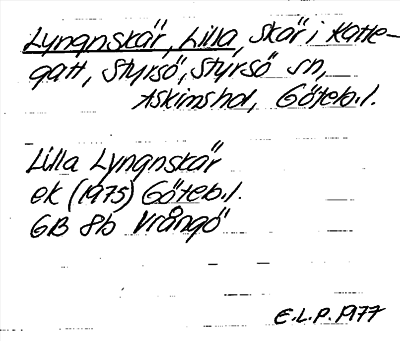 Lyngnskär, Lilla, skär i Katte-
gatt, Styrsö, Styrsö sn,
Askims hd, Göteb.l.
Lilla Lyngnskär
ek (1975) Göteb.l.
GB 8b Vrångö
E.L.P. 1977